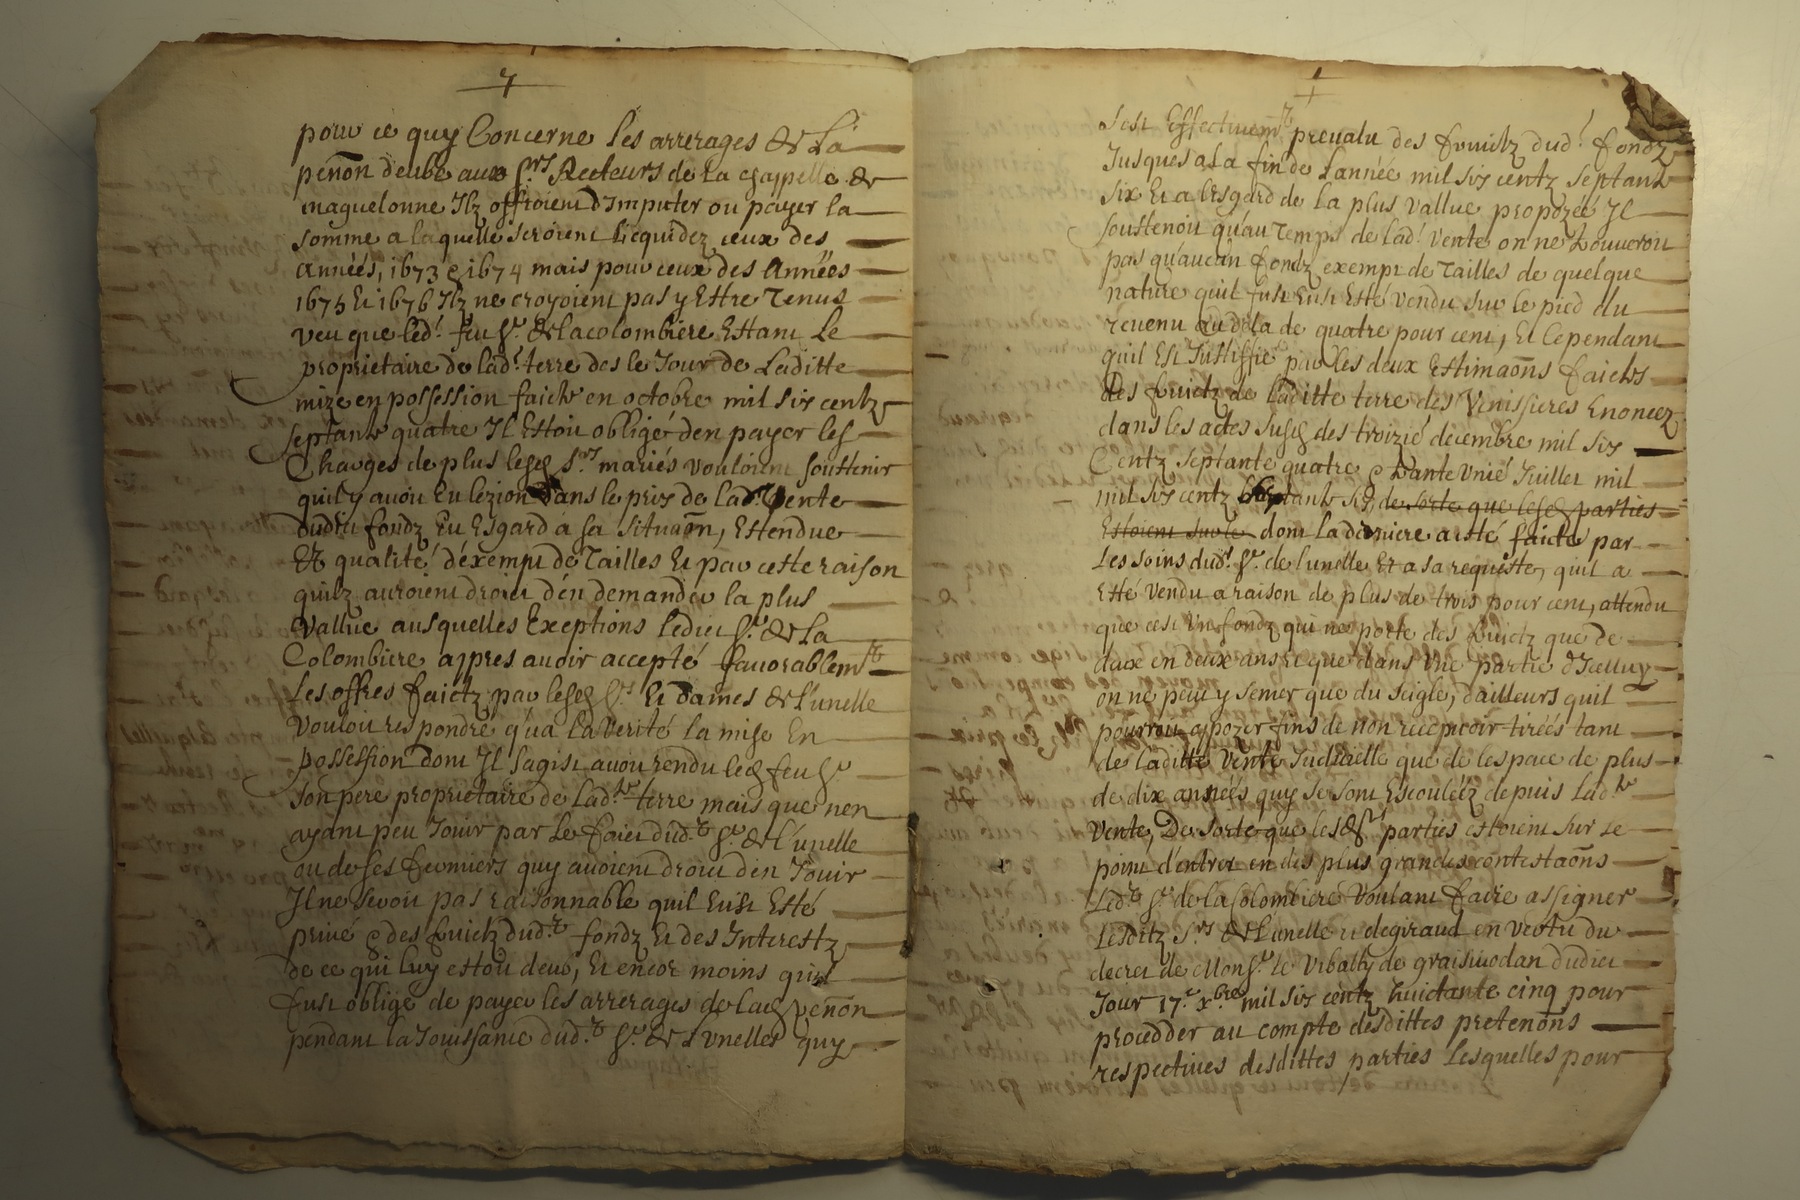 pour ce quy Concerne les arrerages de La
penõn deube aux Srs Recteurs de La chappelle de
maguelonne Ilz offroient d'Imputer ou payer la
somme a laquelle seroient liequidez ceux des
Années, 1673 & 1674 mais pour ceux des Années
1675 Et 1676 Ilz ne croyoient pas y Estre Tenus
veu que led.t feu Sr de Lacolombiere Estant Le
proprietaire de lad.t terre des le Jour de Laditte
mize en possession faicte en octobre mil six centz
septante quatre Il Estoit obligé d'en payer les
Charges de plus lesd Srs mariés vouloient soustenir
quil y avoit Eu lezion dans le prix de lad. Vente
dudit fondz Eu Esgard a sa situaõn, Estendue
Et qualité d'exempt de Tailles Et par cette raison
quilz auroient droict d'en demander la plus
Vallue ausquelles Exeptions ledict Sr de La
Colombiere appres avoir accepté favorablemt
Les offres faictz par lesd Srs Et dames de Lunelle
Vouloit respondre qu'a La Verité la mise En
possession dont Il s'agist avoit rendu led feu Sr
son pere proprietaire de Lad.te terre mais que n'en
ayant peu Jouir par Le faict dud.t Sr de Lunelle
ou de ses fermiers quy avoient droict d'en Jouir
Il ne seroit pas raisonnable quil Eust Esté
privé & des fruictz dud.t fondz Et des Interestz
de ce qui luy estoit deub, Et encor moins quil
fust obligé de payer les arrerages de lad penõn
pendant la Jouissance dud.t Sr de Lunelles quy
S'est Effectivemt prevalu des fruictz dud.t fondz
Jusques a La fin de L'année mil six centz septante
six Et a l'esgard de la plus Vallue propozée Il
soustenoit qu'au Temps de lad.t vente on ne trouveroit
pas qu'aucun fondz exempt de Tailles de quelque
nature quil fust Eust Esté vendu sur le pied du
revenu au dela de quatre pour cent, Et Cependant
quil Est Justiffié par les deux Estimaõns faictes
des fruictz de Laditte terre des Venissieres Enoncez
dans les actes susd des troizie decembre mil six
Centz septante quatre & trante Vnie Juillet mil
mil six centz septante six, de sorte que lesd parties
Estoient sur le dont la derniere a esté faicte par
Les soins dud.t Sr. de lunelle Et a sa requiste, quil a
Esté Vendu a raison de plus de trois pour cent, attendu
que c'est Vn fondz qui ne porte des fruictz que de
deux en deux ans Et que dans Vne partie d'Icelluy
on ne peut y semer que du seigle, d'ailleurs quil
pourroit oppozer fins de non recepvoir tirées tant
de laditte Vente Judicielle que de l'espace de plus
de dix années quy se sont Escouléez depuis Lad.te
Vente, De Sorte que lesd. parties estoient sur Le
point d'entrer en des plus grandes contestaõns
Led.t Sr de la Colombiere Voulant faire assigner
Lesditz Srs de Lunelle et de giraud en Vertu du
decret de Monsr le Vibally de graisivodan dudict
Jour 17.e xbre mil six centz huictante cinq pour
procedder au compte desdittes pretenõns
respectives desdittes parties Lesquelles pour